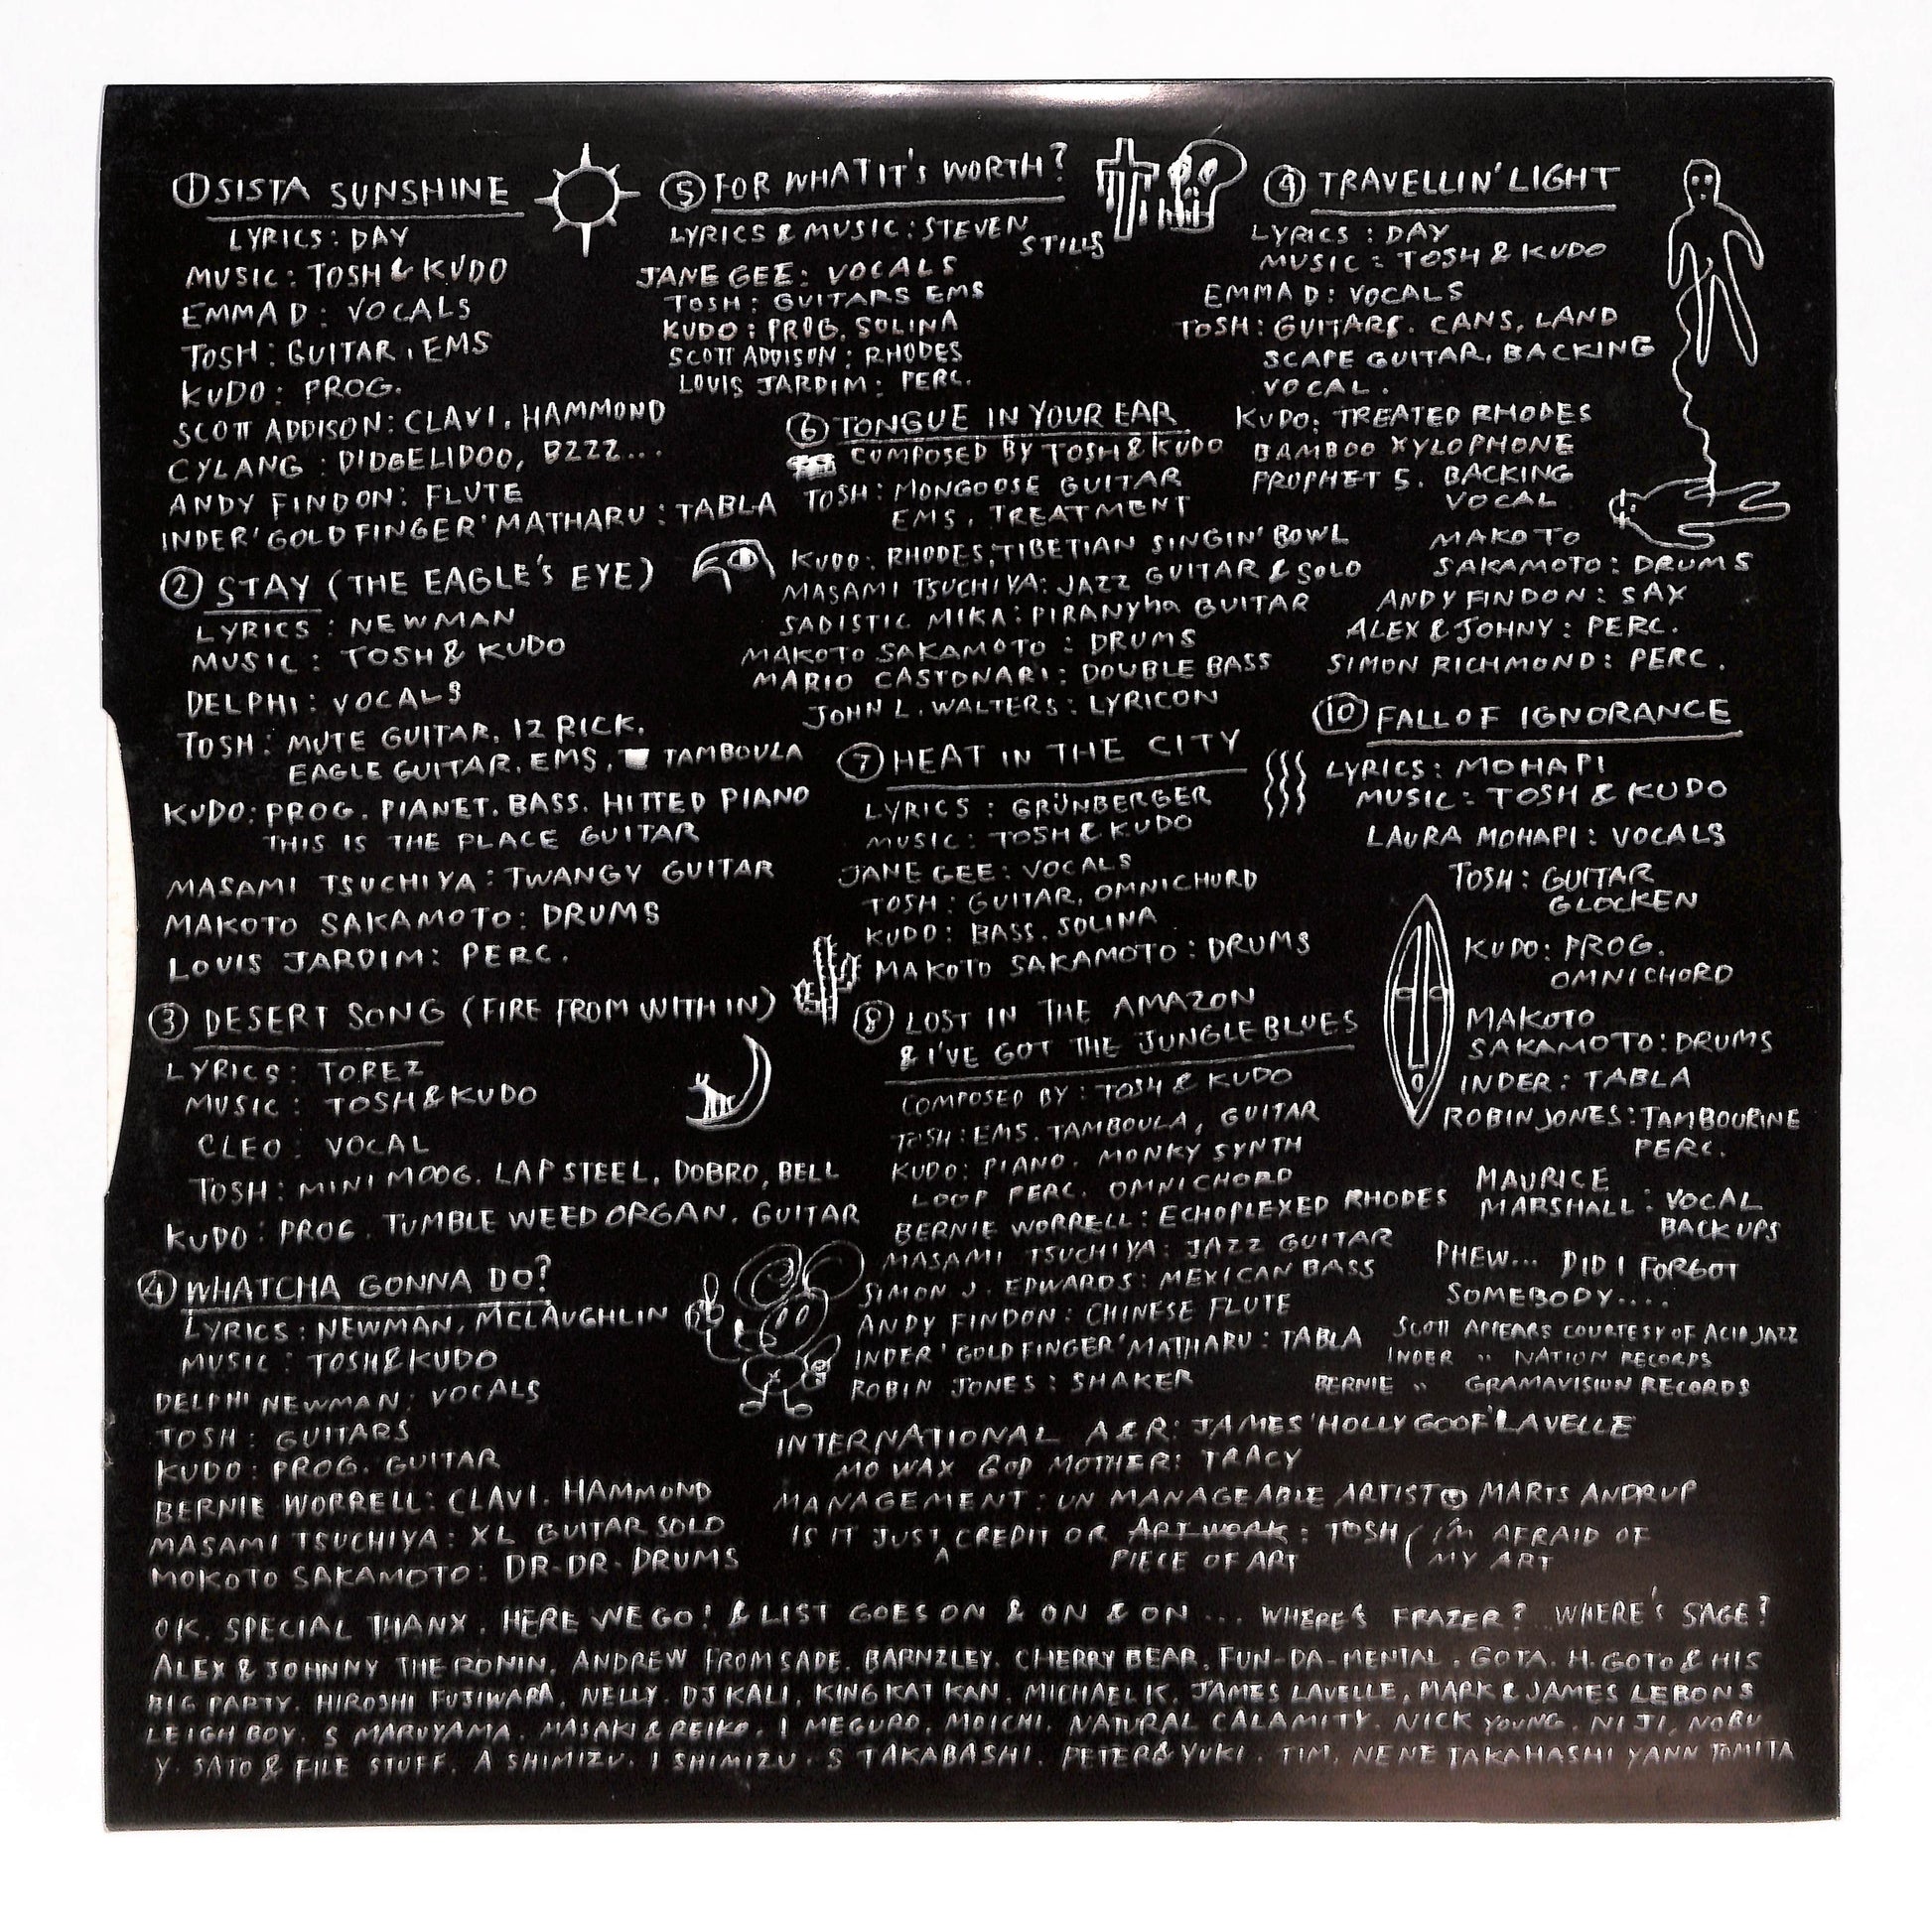 ① SISTA SUNSHINE
LYRICS : DAY
MUSIC : TOSH & KUDO
EMMA D : VOCALS
TOSH : GUITAR, EMS
KUDO : PROG.
SCOTT ADDISON : CLAVI. HAMMOND
CYLANG : DIDGELIDOO, BZZZ...
ANDY FINDON : FLUTE
INDER 'GOLD FINGER' MATHARU : TABLA
② STAY (THE EAGLE'S EYE)
LYRICS : NEWMAN
MUSIC : TOSH & KUDO
DELPHI : VOCALS
TOSH : MUTE GUITAR, 12 RICK.
EAGLE GUITAR, EMS, TAMBOULA
KUDO : PROG. PIANET. BASS. HITTED PIANO
THIS IS THE PLACE GUITAR
MASAMI TSUCHIYA : TWANGY GUITAR
MAKOTO SAKAMOTO : DRUMS
LOUIS JARDIM : PERC.
③ DESERT SONG (FIRE FROM WITHIN)
LYRICS : TOREZ
MUSIC : TOSH & KUDO
CLEO : VOCAL
TOSH : MINI MOOG. LAP STEEL, DOBRO, BELL
KUDO : PROG. TUMBLE WEED ORGAN. GUITAR
④ WHATCHA GONNA DO?
LYRICS : NEWMAN, MCLAUGHLIN
MUSIC : TOSH & KUDO
DELPHI NEWMAN : VOCALS
TOSH : GUITARS
KUDO : PROG. GUITAR
BERNIE WORRELL : CLAVI. HAMMOND
MASAMI TSUCHIYA : XL GUITAR SOLO
MOKOTO SAKAMOTO : DR-DR-DRUMS
⑤ FOR WHAT IT'S WORTH?
LYRICS & MUSIC : STEVEN
STILLS
JANE GEE : VOCALS
TOSH : GUITARS EMS
KUDO : PROG. SOLINA
SCOTT ADDISON : RHODES
LOUIS JARDIM : PERC.
⑥ TONGUE IN YOUR EAR
COMPOSED BY TOSH & KUDO
TOSH : MONGOOSE GUITAR
EMS, TREATMENT
KUDO : RHODES, TIBETIAN SINGIN' BOWL
MASAMI TSUCHIYA : JAZZ GUITAR & SOLO
SADISTIC MIKA : PIRANYha GUITAR
MAKOTO SAKAMOTO : DRUMS
MARIO CASTONARI : DOUBLE BASS
JOHN L. WALTERS : LYRICON
⑦ HEAT IN THE CITY
LYRICS : GRÜNBERGER
MUSIC : TOSH & KUDO
JANE GEE : VOCALS
TOSH : GUITAR, OMNICHORD
KUDO : BASS. SOLINA
MAKOTO SAKAMOTO : DRUMS
⑧ LOST IN THE AMAZON
& I'VE GOT THE JUNGLE BLUES
COMPOSED BY : TOSH & KUDO
TOSH : EMS. TAMBOULA, GUITAR
KUDO : PIANO. MONKY SYNTH
LOOP PERC. OMNICHORD
BERNIE WORRELL : ECHOPLEXED RHODES
MASAMI TSUCHIYA : JAZZ GUITAR
SIMON J. EDWARDS : MEXICAN BASS
ANDY FINDON : CHINESE FLUTE
INDER 'GOLD FINGER' MATHARU : TABLA
ROBIN JONES : SHAKER
⑨ TRAVELLIN' LIGHT
LYRICS : DAY
MUSIC : TOSH & KUDO
EMMA D : VOCALS
TOSH : GUITARS. CANS, LAND
SCAPE GUITAR, BACKING
VOCAL.
KUDO : TREATED RHODES
BAMBOO XYLOPHONE
PROPHET 5. BACKING
VOCAL
MAKOTO
SAKAMOTO : DRUMS
ANDY FINDON : SAY
ALEX & JOHNY : PERC.
SIMON RICHMOND : PERC.
⑩ FALL OF IGNORANCE
LYRICS : MOHAPI
MUSIC : TOSH & KUDO
LAURA MOHAPI : VOCALS
TOSH : GUITAR
GLOCKEN
KUDO : PROG.
OMNICHORD
MAKOTO
SAKAMOTO : DRUMS
INDER : TABLA
ROBIN JONES : TAMBOURINE
PERC.
MAURICE
MARSHALL : VOCAL
BACK UPS
PHEW... DID I FORGOT
SOMEBODY....
SCOTT APPEARS COURTESY OF ACID JAZZ
INDER " NATION RECORDS
BERNIE " GRAMAVISION RECORDS
INTERNATIONAL A&R : JAMES 'HOLLY GOOF' LAVELLE
MO WAX GOD MOTHER : TRACY
MANAGEMENT : UN MANAGEABLE ARTIST MARTS ANDRUP
IS IT JUST CREDIT OR ART WORK : TOSH ( I'm AFRAID OF
PIECE OF ART ( MY ART
OK. SPECIAL THANX. HERE WE GO! & LIST GOES ON & ON & ON ... WHERE'S FRAZER? WHERE'S SAGE?
ALEX & JOHNNY THE RONIN. ANDREW FROM SADE. BARNZLEY. CHERRY BEAR. FUN-DA-MENTAL. GOTA. H. GOTO & HIS
BIG PARTY. HIROSHI FUJIWARA. NELLY. DJ KALI, KING KAT KAN. MICHAEL K. JAMES LAVELLE, MARK & JAMES LEBONS
LEIGH BOY. S MARUYAMA. MASAKI & REIKO. I MEGURO. MOICHI. NATURAL CALAMITY. NICK YOUNG. NIJI, NOBU
Y. SATO & FILE STUFF. A SHIMIZU. I SHIMIZU. S TAKABASHI. PETER & YUKI. TIM, NENE TAKAHASHI YANN TOMITA